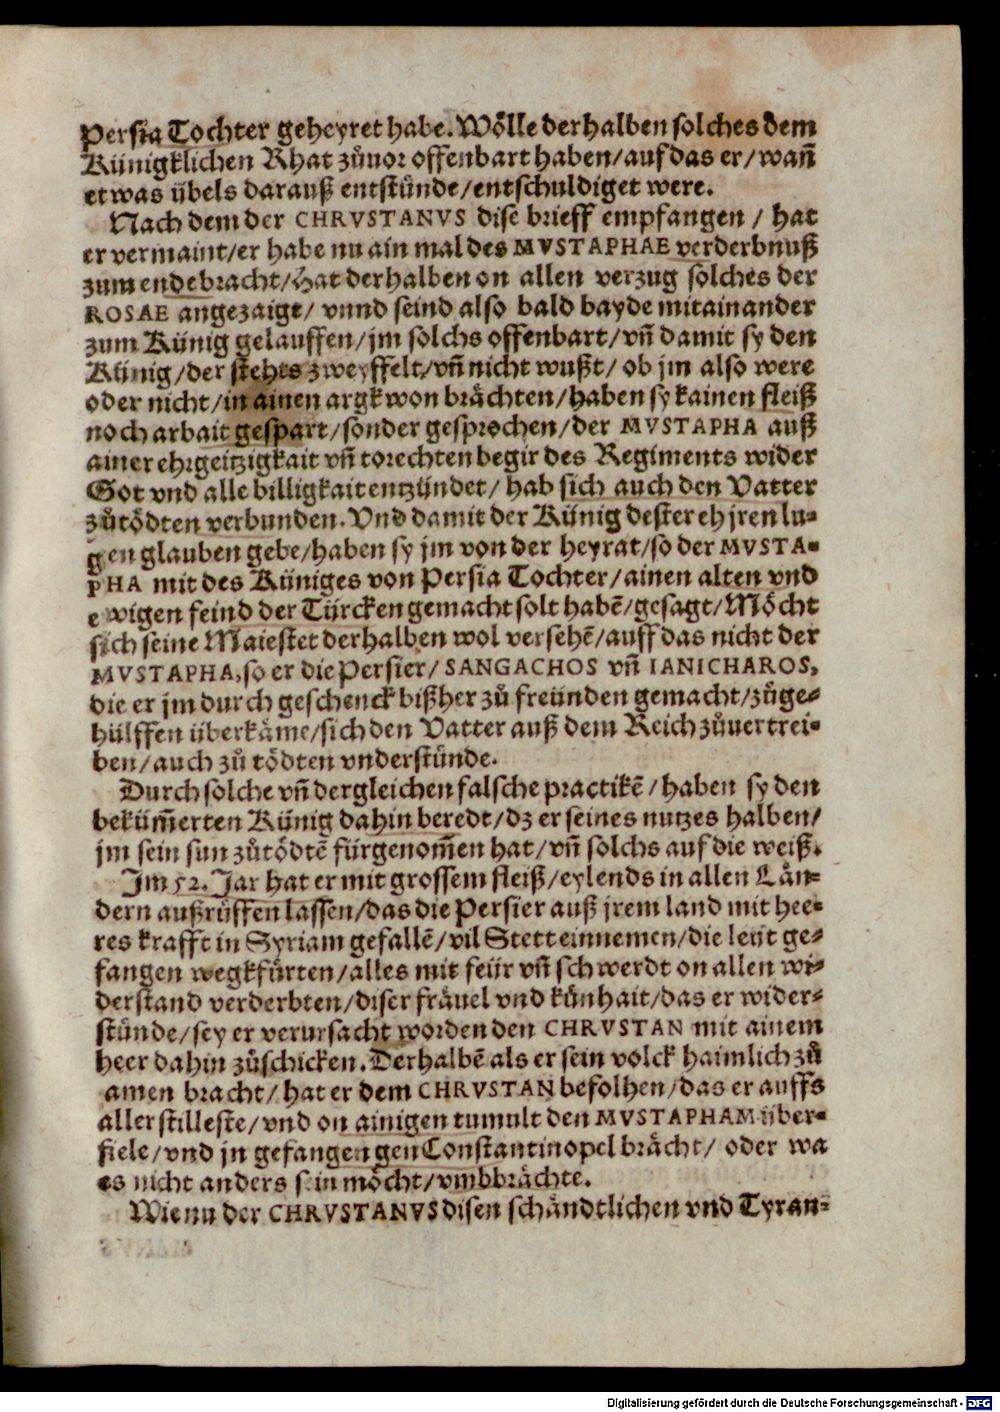 Persia Tochter geheyret habe. Wölle derhalben solches dem
Künigklichen Rhat zůuor offenbart haben/auf das er/wañ
etwas übels darauß entstünde/entschuldiget were.
Nach dem der CHRVSTANVS dise brieff empfangen / hat
er vermaint/er habe nu ain mal des MVSTAPHAE verderbnuß
zum ende bracht/Hat derhalben on allen verzug solches der
ROSAE angezaigt/ vnnd seind also bald bayde mitainander
zum Künig gelauffen/jm solchs offenbart/vñ damit sy den
Künig/der stehts zweyffelt/vñ nicht wußt/ ob jm also were
oder nicht/in ainen argkwon brächten/haben sy kainen fleiß
noch arbait gespart/sonder gesprochen/der MVSTAPHA auß
ainer ehrgeitzigkait vñ torechten begir des Regiments wider
Got vnd alle billigkait entzündet/ hab sich auch den Vatter
zůtödten verbunden. Vnd damit der Künig dester eh jren lu-
gen glauben gebe/haben sy jm von der heyrat/so der MVSTA-
PHA mit des Küniges von Persia Tochter/ainen alten vnd
ewigen feind der Türcken gemacht solt habẽ/gesagt/Möcht
sich seine Maiestet derhalben wol versehẽ/auff das nicht der
MVSTAPHA, so er die Persier/ SANGACHOS vñ IANICHAROS,
die er jm durch geschenck bißher zů freünden gemacht/zůge-
hülffen überkäme/sich den Vatter auß dem Reich zůuertrei-
ben/auch zů tödten vnderstünde.
Durch solche vñ dergleichen falsche practikẽ/haben sy den
bekům̃erten Künig dahin beredt/dz er seines nutzes halben/
jm sein sun zůtödtẽ fürgenom̃en hat/vñ solchs auf die weiß.
Im 52. Jar hat er mit grossem fleiß/eylends in allen Län-
dern außrüffen lassen/das die Persier auß jrem land mit hee-
res krafft in Syriam gefallẽ/vil Stett einnemen/die leüt ge-
fangen wegkfürten/alles mit feür vñ schwerdt on allen wi-
derstand verderbten/diser fräuel vnd künhait/das er wider-
stünde/sey er verursacht worden den CHRVSTAN mit ainem
heer dahin zůschicken. Derhalbẽ als er sein volck haimlich zů
amen bracht/ hat er dem CHRVSTAN befolhen/das er auffs
aller stilleste/vnd on ainigen tumult den MVSTAPHAM über-
fiele/vnd jn gefangen gen Constantinopel brächt/ oder wa
es nicht anders sein möcht/vmbbrächte.
Wie nu der CHRVSTANVS disen schändtlichen vnd Tyran-
Digitalisierung gefördert durch die Deutsche Forschungsgemeinschaft - DFG